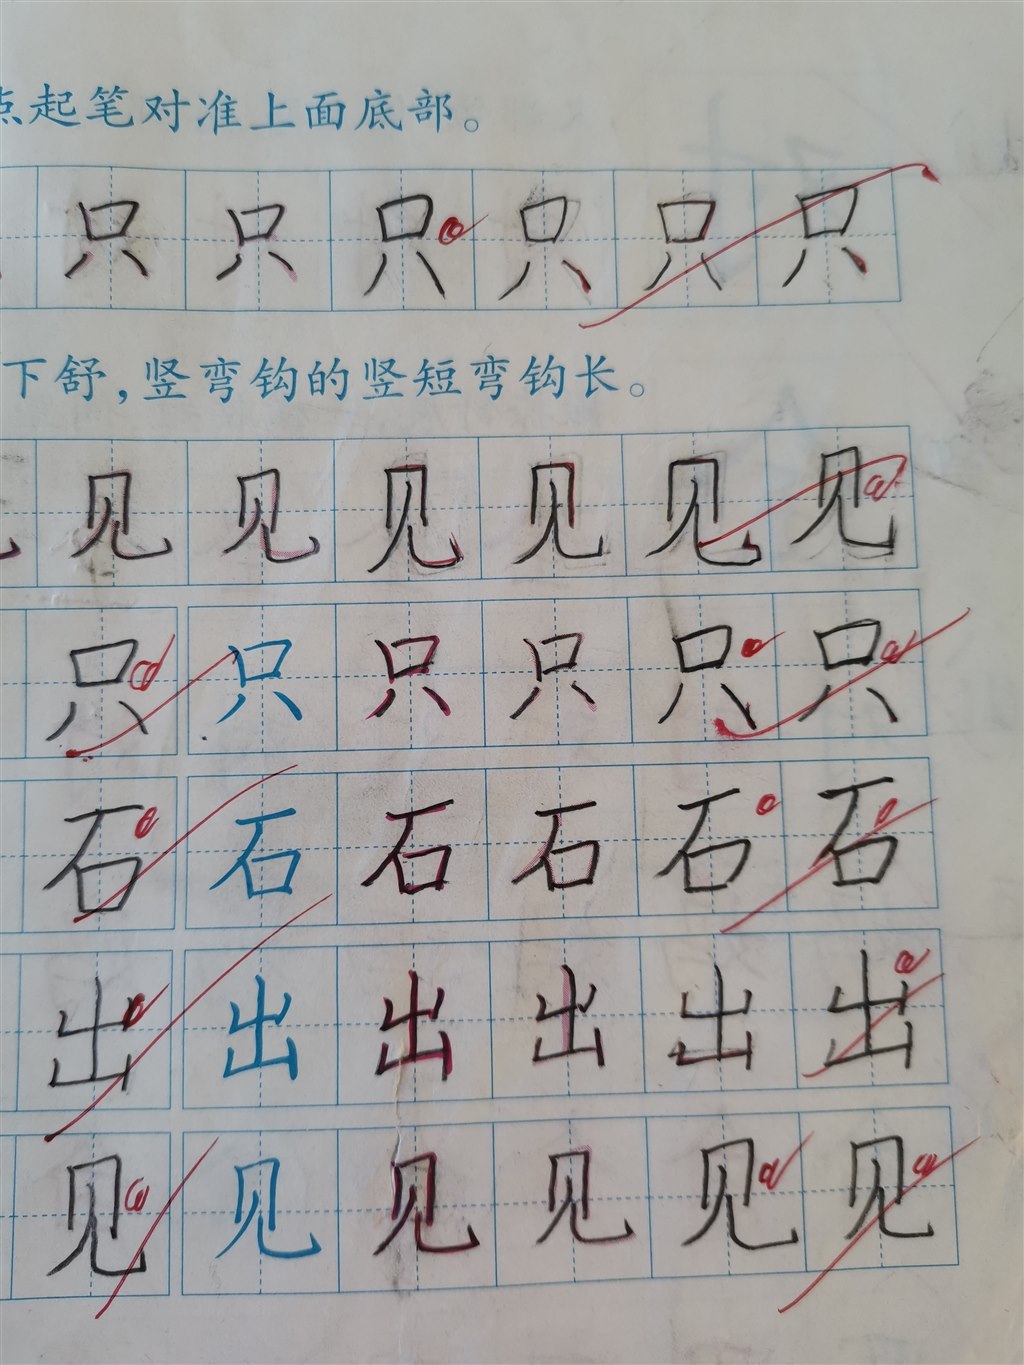 点起笔对准上面底部。
只只只只只只
下舒,竖弯钩的竖短弯钩长。
见见见见见见
只只只只只只
石石石石石石
出出出出出出
见见见见见见